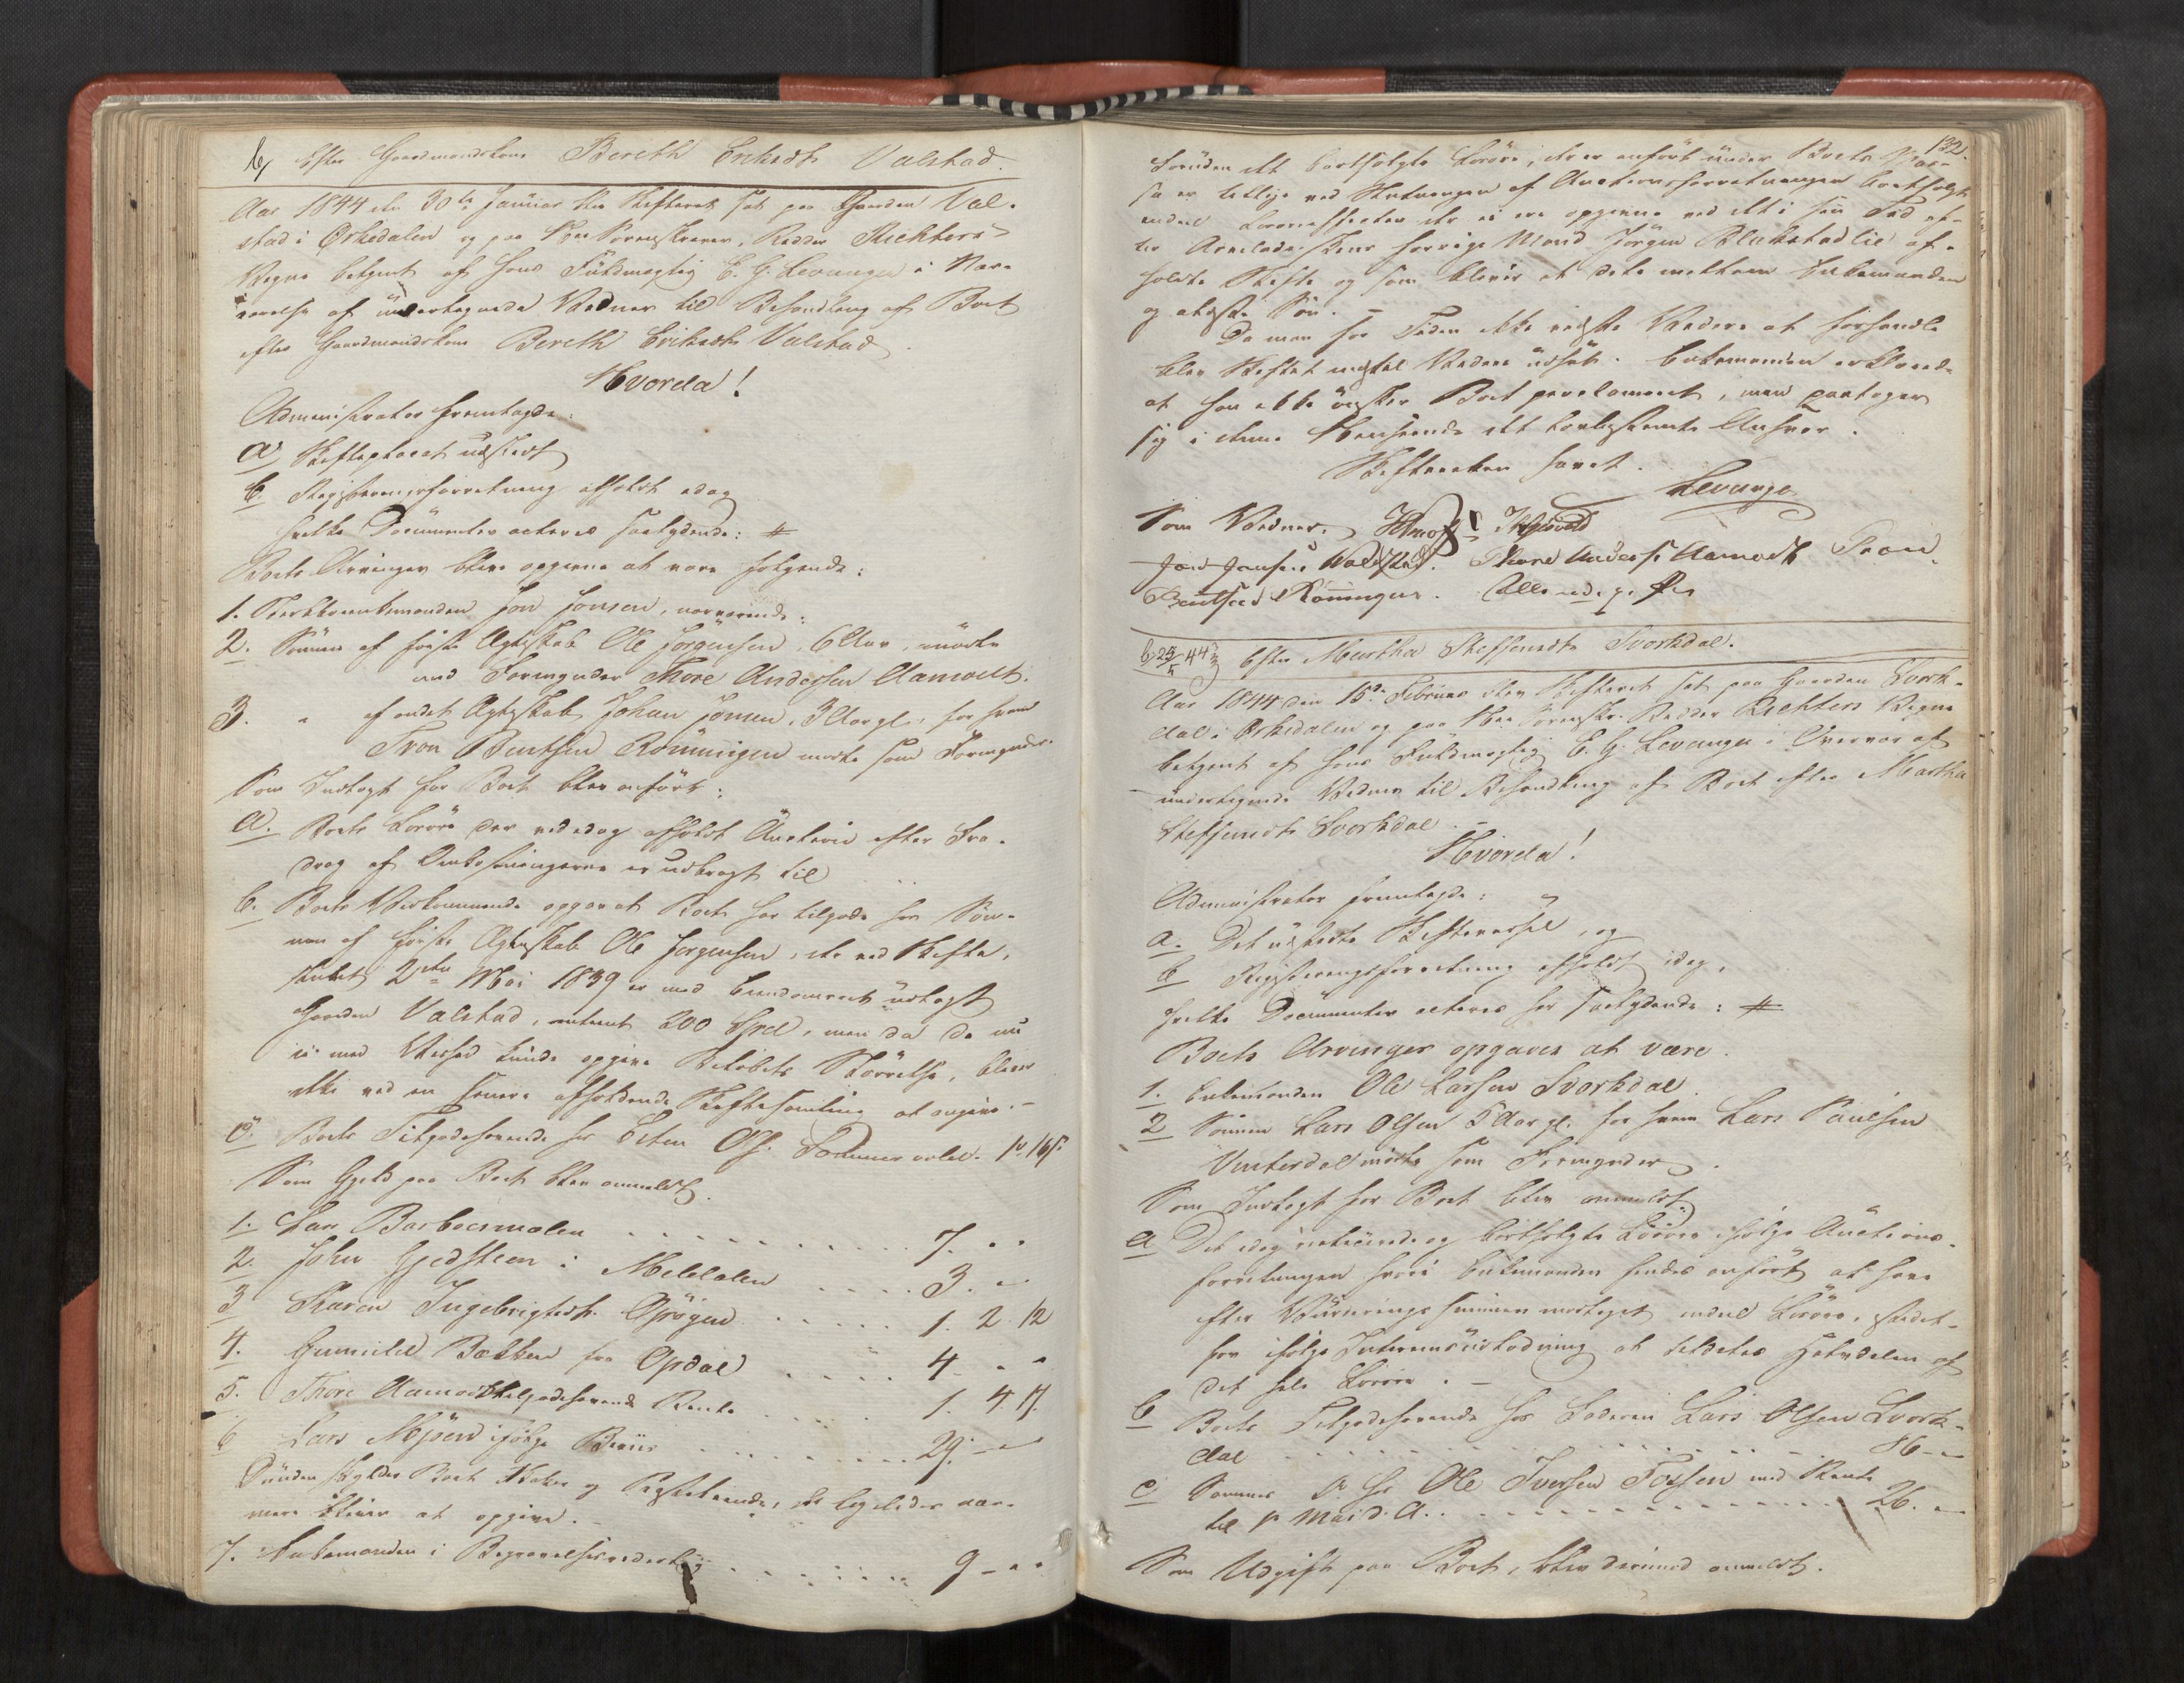 b, Efter Gaardmandskone Bereth Eriksdtr Valstad
Aar 1844 den 30te Januar blev Skifteret sat paa Gaarden Val-
stad i Ørkedalen og paa Hr Sorenskriver, Ridder Richters
Vegne betjent af hans Fuldmægtig E. G. Levanger i Nær-
værelse af undertegnede Vidner til Behandling af Boet
efter Gaardmandskone Bereth Eriksdtr Valstad
Hvorda!
Administrator fremlagde:
a, Skifteplacat udstedt
b. Registreringsforretning afholdt idag
hvilke Documenter acteres saalydende: #
Boets Arvinger bleve opgivne at være følgende:
1. Enkemanden Jon Jonsen, nærværende.
2. Sønnen af første Ægteskab Ole Jørgensen, 6 Aar, mødte
med Formynder Thore Andersen Aamodt.
3. " af andet Ægteskab Johan Jonsen, 3 Aar gl., for hvem
Tron Bentsen Rønningen mødte som Formynder.
Som Indtægt for Boet blev anført:
a. Boets Løsøre der ved idag afholdt Auction efter Fra-
drag af Omkostningerne er udbragt til
b. Boets Vedkommende opgav at Boet har tilgode hos Søn-
nen af første Ægteskab Ole Jørgensen, der ved Skifte,
sluttet 2den Mai 1839 er med Eiendomsret udlagt
Gaarden Valstad, antaget 200 Spd, men da de nu
ei med Vished kunde opgive Beløbets Størrelse, bliver
dette ved en senere afholdende Skiftesamling at angive.-
c. Boets Tilgodehavende hos Esten Ols. Sommervold. 1. 16 s.
Som Gjeld paa Boet blev anmeldt.
1. Lars Barboesmoen 7. " "
2. John Gjedsteen i Meldalen 3. "
3 Karen Ingebrigtsdtr 1. 2. 12
4. Gunnild Bakken fra Opdal 4 - "
5. Thore Aamodt tilgodehavende Rente 1. 4. 17.
6 Lars Mjøen ifølge Beviis 29. - "
Desuden skylder Boet Skatter og Restancer, der ligeledes nær-
mere bliver at opgive.-
7. Enkemanden i Begravelsesvederlag 9 - " "
132.
Foruden det bortsolgte Løsøre, der er anført under Boets Mas-
sa er tillige ved Slutningen af Auctionsforretningen bortsolgt
endeel Løsøreeffecter der ei ere opgivne ved det i sin Tid ef-
ter Arveladerskens forrige Mand Jörgen Blakstadlie af-
holdte Skifte og som bliver at dele mellem Enkemanden
og ældste Søn.-
Da man for Tiden ikke vidste Videre at forhandle
blev Skiftet indtil Videre udsat. Enkemanden erklærede
at han ikke ønsker Boet proclameret, men paatager
sig i denne Henseende det lovbestemte Ansvar.
Skifteretten hævet.
Levange
Som Vidner,
Jon Jonsen Walstad. Thore Anderss Aamodt Tron
Bentsen Rönningen. Alle med p. Pen
b, 25/5 44 Efter Martha Steffensdtr Svorkdal.
Aar 1844 den 15de Februar blev Skifteret sat paa Gaarden Svork-
dal i Ørkedalen og paa Hr Sorenskr. Ridder Richters Vegne
betjent af hans Fuldmægtig E. G. Levanger i Overvær af
undertegnede Vidner til Behandling af Boet efter Martha
Steffensdtr Svorkdal.-
Hvorda!
Administrator fremlagde:
a. Det udstedte Skiftevarsel, og
b Registreringsforretning afholdt idag,
hvilke Documenter acteres her saalydende: #
Boets Arvinger opgaves at være.
1. Enkemanden Ole Larsen Svorkdal.
2 Sønnen Lars Olsen 5 Aar gl. for hvem Lars Paulsen
Vinterdal mødte som Formynder.
Som Indtægt for Boet blev anmeldt.
a Det idag registrerede og bortsolgte Løsøre ifølge Auctions-
forretningen hvori Enkemanden findes anført at have
efter Vurderings Summen modtaget endeel Løsøre,
for ifølge at Halvdelen af
det hele Løsøre.-
b Boets Tilgodehavende hos Faderen Lars Olsen Svork-
dal 86 - "
c Sammes do hos Ole Iversen Fossen med Rente
til 1ste Mai d. A. 26. "
Som Udgift paa Boet, blev derimod anmeldt.